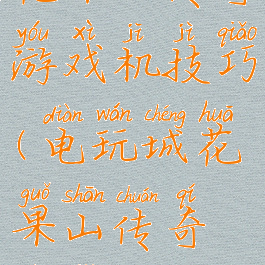 yóu xì jī jì qiǎo
游戏机技巧
diàn wán chéng huā
(电玩城花
guǒ shān chuán qí
果山传奇